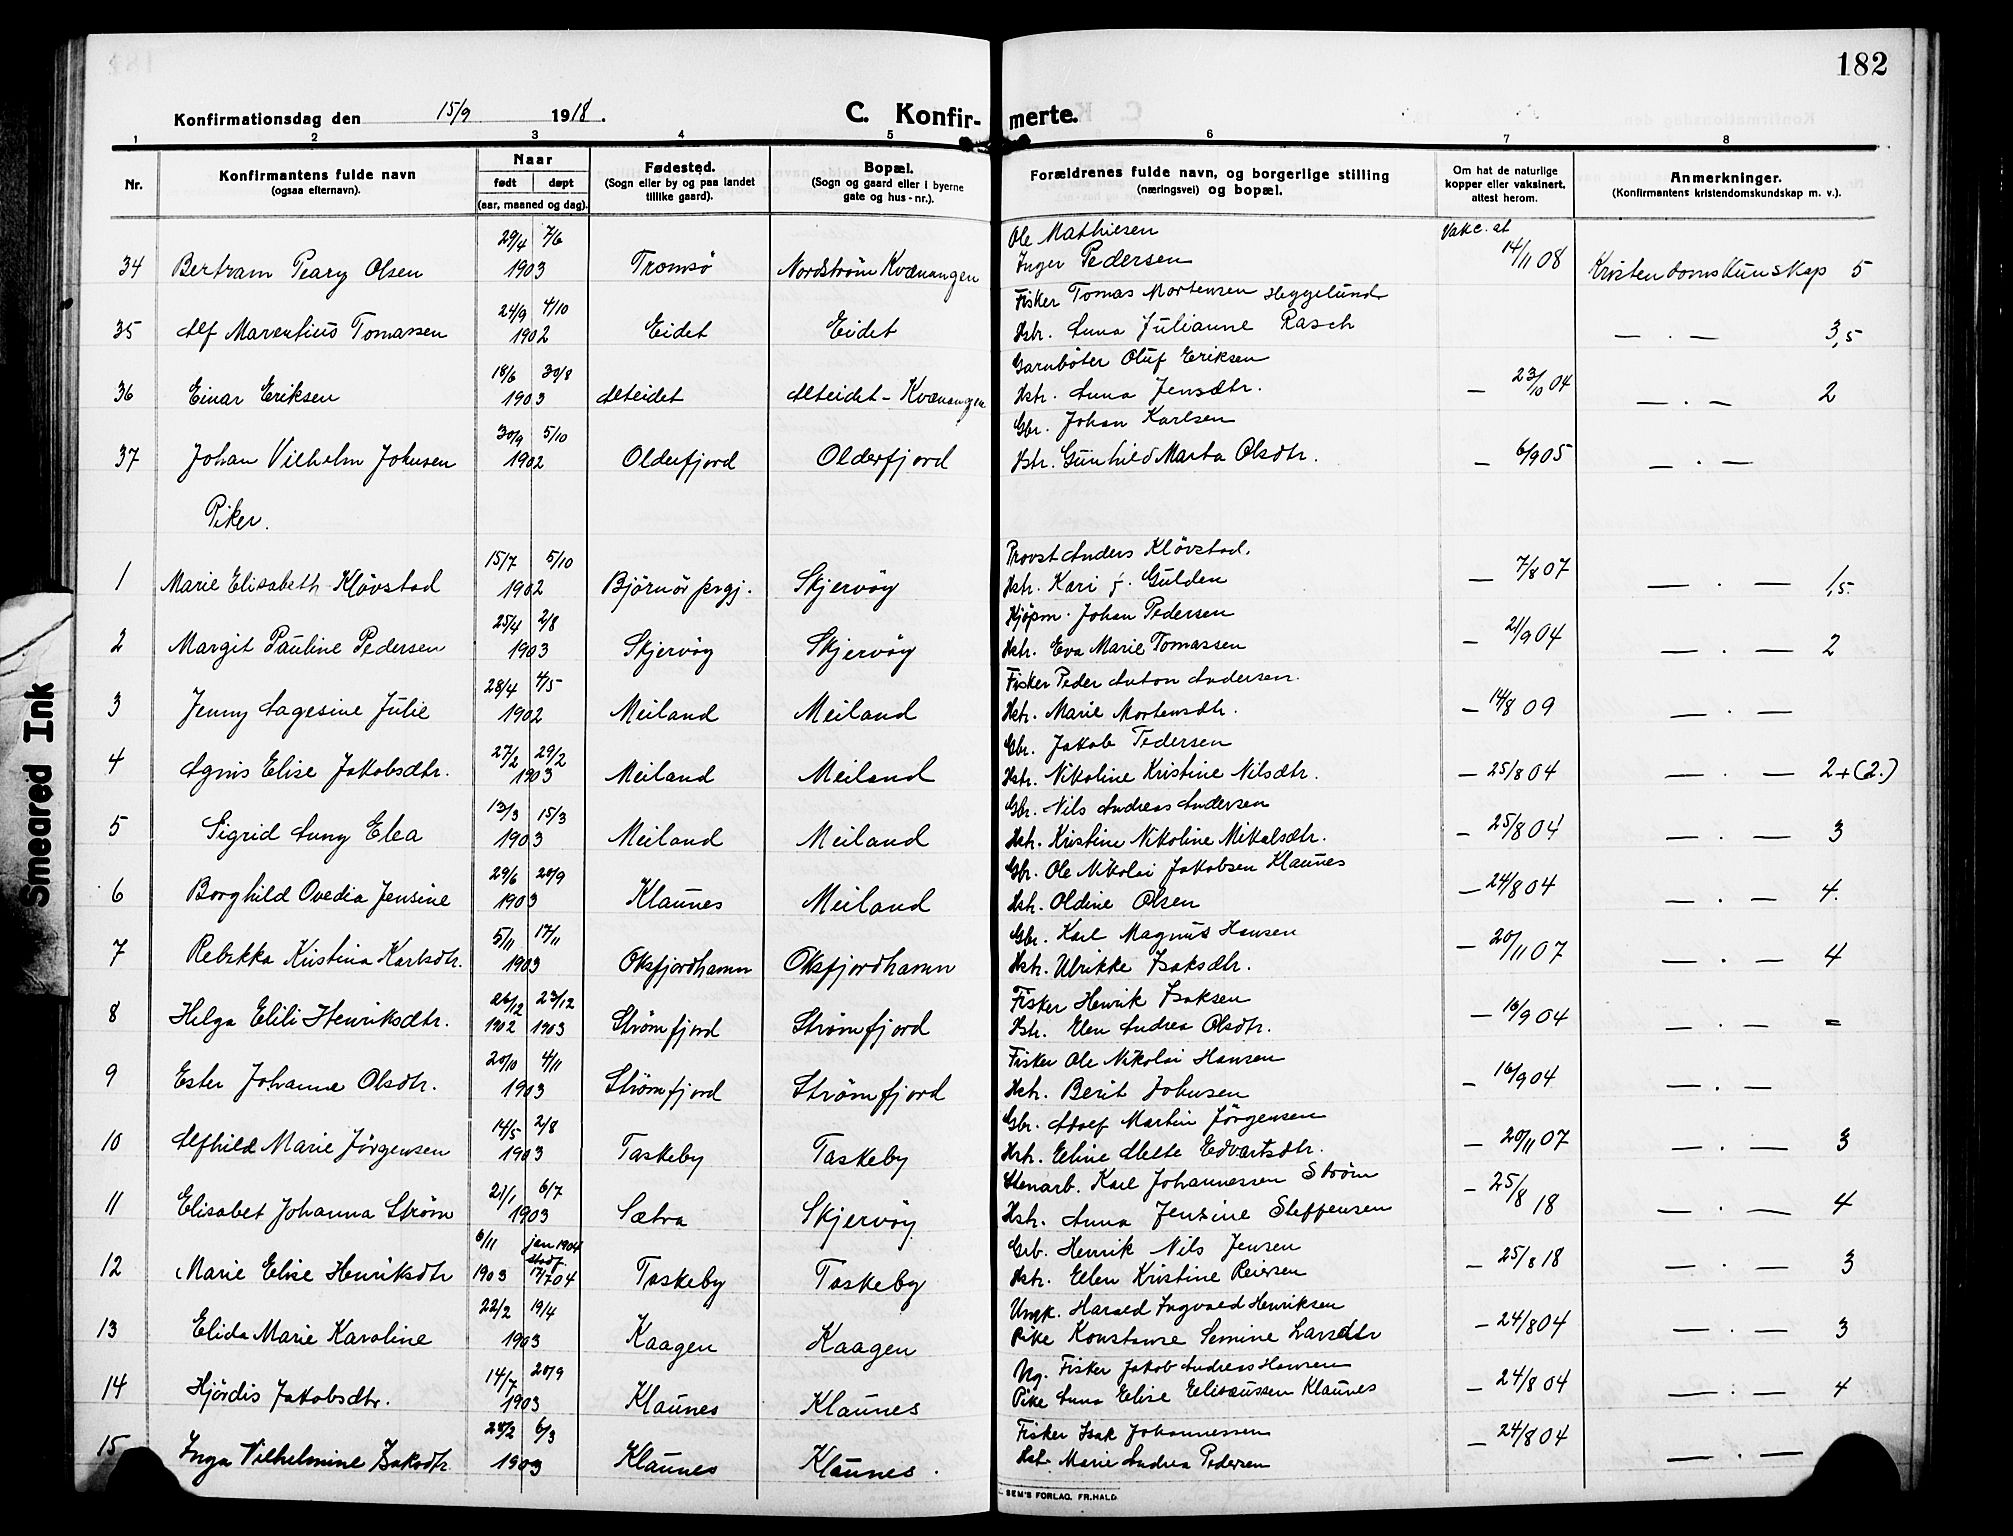 182
Konfirmationsdag den 15/9 1918. C. Konfir- merte.
1 2 3 4 5 6 7 8
Nr. Konfirmantens fulde navn (ogsaa efternavn). Naar født døpt (aar, maaned og dag). Fødested. (Sogn eller by og paa landet tillike gaard). Bopæl. (Sogn og gaard eller i byerne gate og hus-nr.). Forældrenes fulde navn, og borgerlige stilling (næringsvei) og bopæl. Om hat de naturlige kopper eller vaksinert, attest herom. Anmerkninger. (Konfirmantens kristendomskundskap m. v.).
29/4 7/6 Ole Mathiesen Vakc. at
34 Bertram Peary Olsen 1903 Tromsø Nordstrøm Kvænangen Inger Pedersen 14/11 08 Kristendomskunskap 5
24/9 4/10 Fisker Tomas Mortensen Heggelund
35 Alf Marentius Tomassen 1902 Eidet Eidet Hstr. Anna Julianne Rasch — . — 3,5
18/6 30/8 Garnböter Oluf Eriksen
36 Einar Eriksen 1903 Alteidet Alteidet - Kvænangen Hstr. Anna Jensdtr. — 23/10 04 — . — 2
30/9 5/10 Gbr. Johan Karlsen
37 Johan Vilhelm Johnsen 1902 Olderfjord Olderfjord Hstr. Gunhild Marta Olsdtr. — 6/9 05 — . —
Piker.
15/7 5/10 Provst Anders Klövstad.
1 Marie Elisabeth Klövstad 1902 Björnör prgj. Skjervöy Hstr. Kari f. Gulden — 7/8 07 — . — 1,5
25/4 2/8 Kjøpm. Johan Pedersen
2 Margit Pauline Pedersen 1903 Skjervöy Skjervöy Hstr. Eva Marie Tomassen — 21/9 04 — . — 2
28/4 4/5 Fisker Peder Anton Andersen.
3 Jenny Aagesine Julie 1902 Meiland Meiland Hstr. Marie Mortensdtr. — 14/8 09 — . —
27/2 29/2 Gbr. Jakob Pedersen
4 Agnis Elise Jakobsdtr. 1903 Meiland Meiland Hstr. Nikoline Kristine Nilsdtr. — 25/8 04 — . — 2+(2.)
13/3 15/3 Gbr. Nils Andreas Andersen
5 Sigrid Anny Elea 1903 Meiland Meiland Hstr. Kristine Nikoline Mikalsdtr. — 25/8 04 — . — 3
29/6 20/9 Gbr. Ole Nikolai Jakobsen Klaunes
6 Borghild Ovedia Jensine 1903 Klaunes Meiland Hstr. Oldine Olsen — 24/8 04 — . — 4.
5/11 17/11 Gbr. Karl Magnus Hansen
7 Rebekka Kristina Karlsdtr. 1903 Oksfjordhamn Oksfjordhamn Hstr. Ulrikke Isaksdtr. — 20/11 07 — . — 4
26/12 23/12 Fisker Henrik Isaksen
8 Helga Elili Henriksdtr. 1902 1903 Strømfjord Strømfjord Hstr. Elen Andrea Olsdtr. — 16/9 04 — . — =
20/10 4/11 Fisker Ole Nikolai Hansen
9 Ester Johanne Olsdtr. 1903 Strømfjord Strømfjord Hstr. Berit Johnsen — 16/9 04 — . —
14/5 2/8 Gbr. Adolf Martin Jörgensen
10 Alfhild Marie Jörgensen 1903 Taskeby Taskeby Hstr. Eline Mette Edvartsdtr. — 20/11 07 — . — 3
21/1 6/7 Stenarb. Karl Johannessen Strøm
11 Elisabet Johanna Strøm 1903 Sætra Skjervöy Hstr. Anna Jensine Steffensen — 25/8 18 — . — 4
6/11 jan 1904 stadf. Grb. Henrik Nils Jensen
12 Marie Elise Henriksdtr 1903 17/7 04 Taskeby Taskeby Hstr. Ellen Kristine Reiersen — 25/8 18 — . — 3
22/2 19/4 Ungk. Harald Ingvald Henriksen
13 Elida Marie Karoline 1903 Kaagen Kaagen Pike Konstanse Semine Larsdtr — 24/8 04 — . — 3
14/7 20/9 Ug. Fisker Jakob Andreas Hansen
14 Hjördis Jakobsdtr. 1903 Klaunes Klaunes Pike Anna Elise Eliseussen Klaunes — 24/8 04 — : — 4
24/2 6/3 Fisker Isak Johannessen
15 Inga Vilhelmine Isaksdtr. 1903 Klaunes Klaunes. Hstr. Marie Andrea Pedersen — 24/8 04 — . —
SEM'S FORLAG, FR.HALD
Smeared Ink